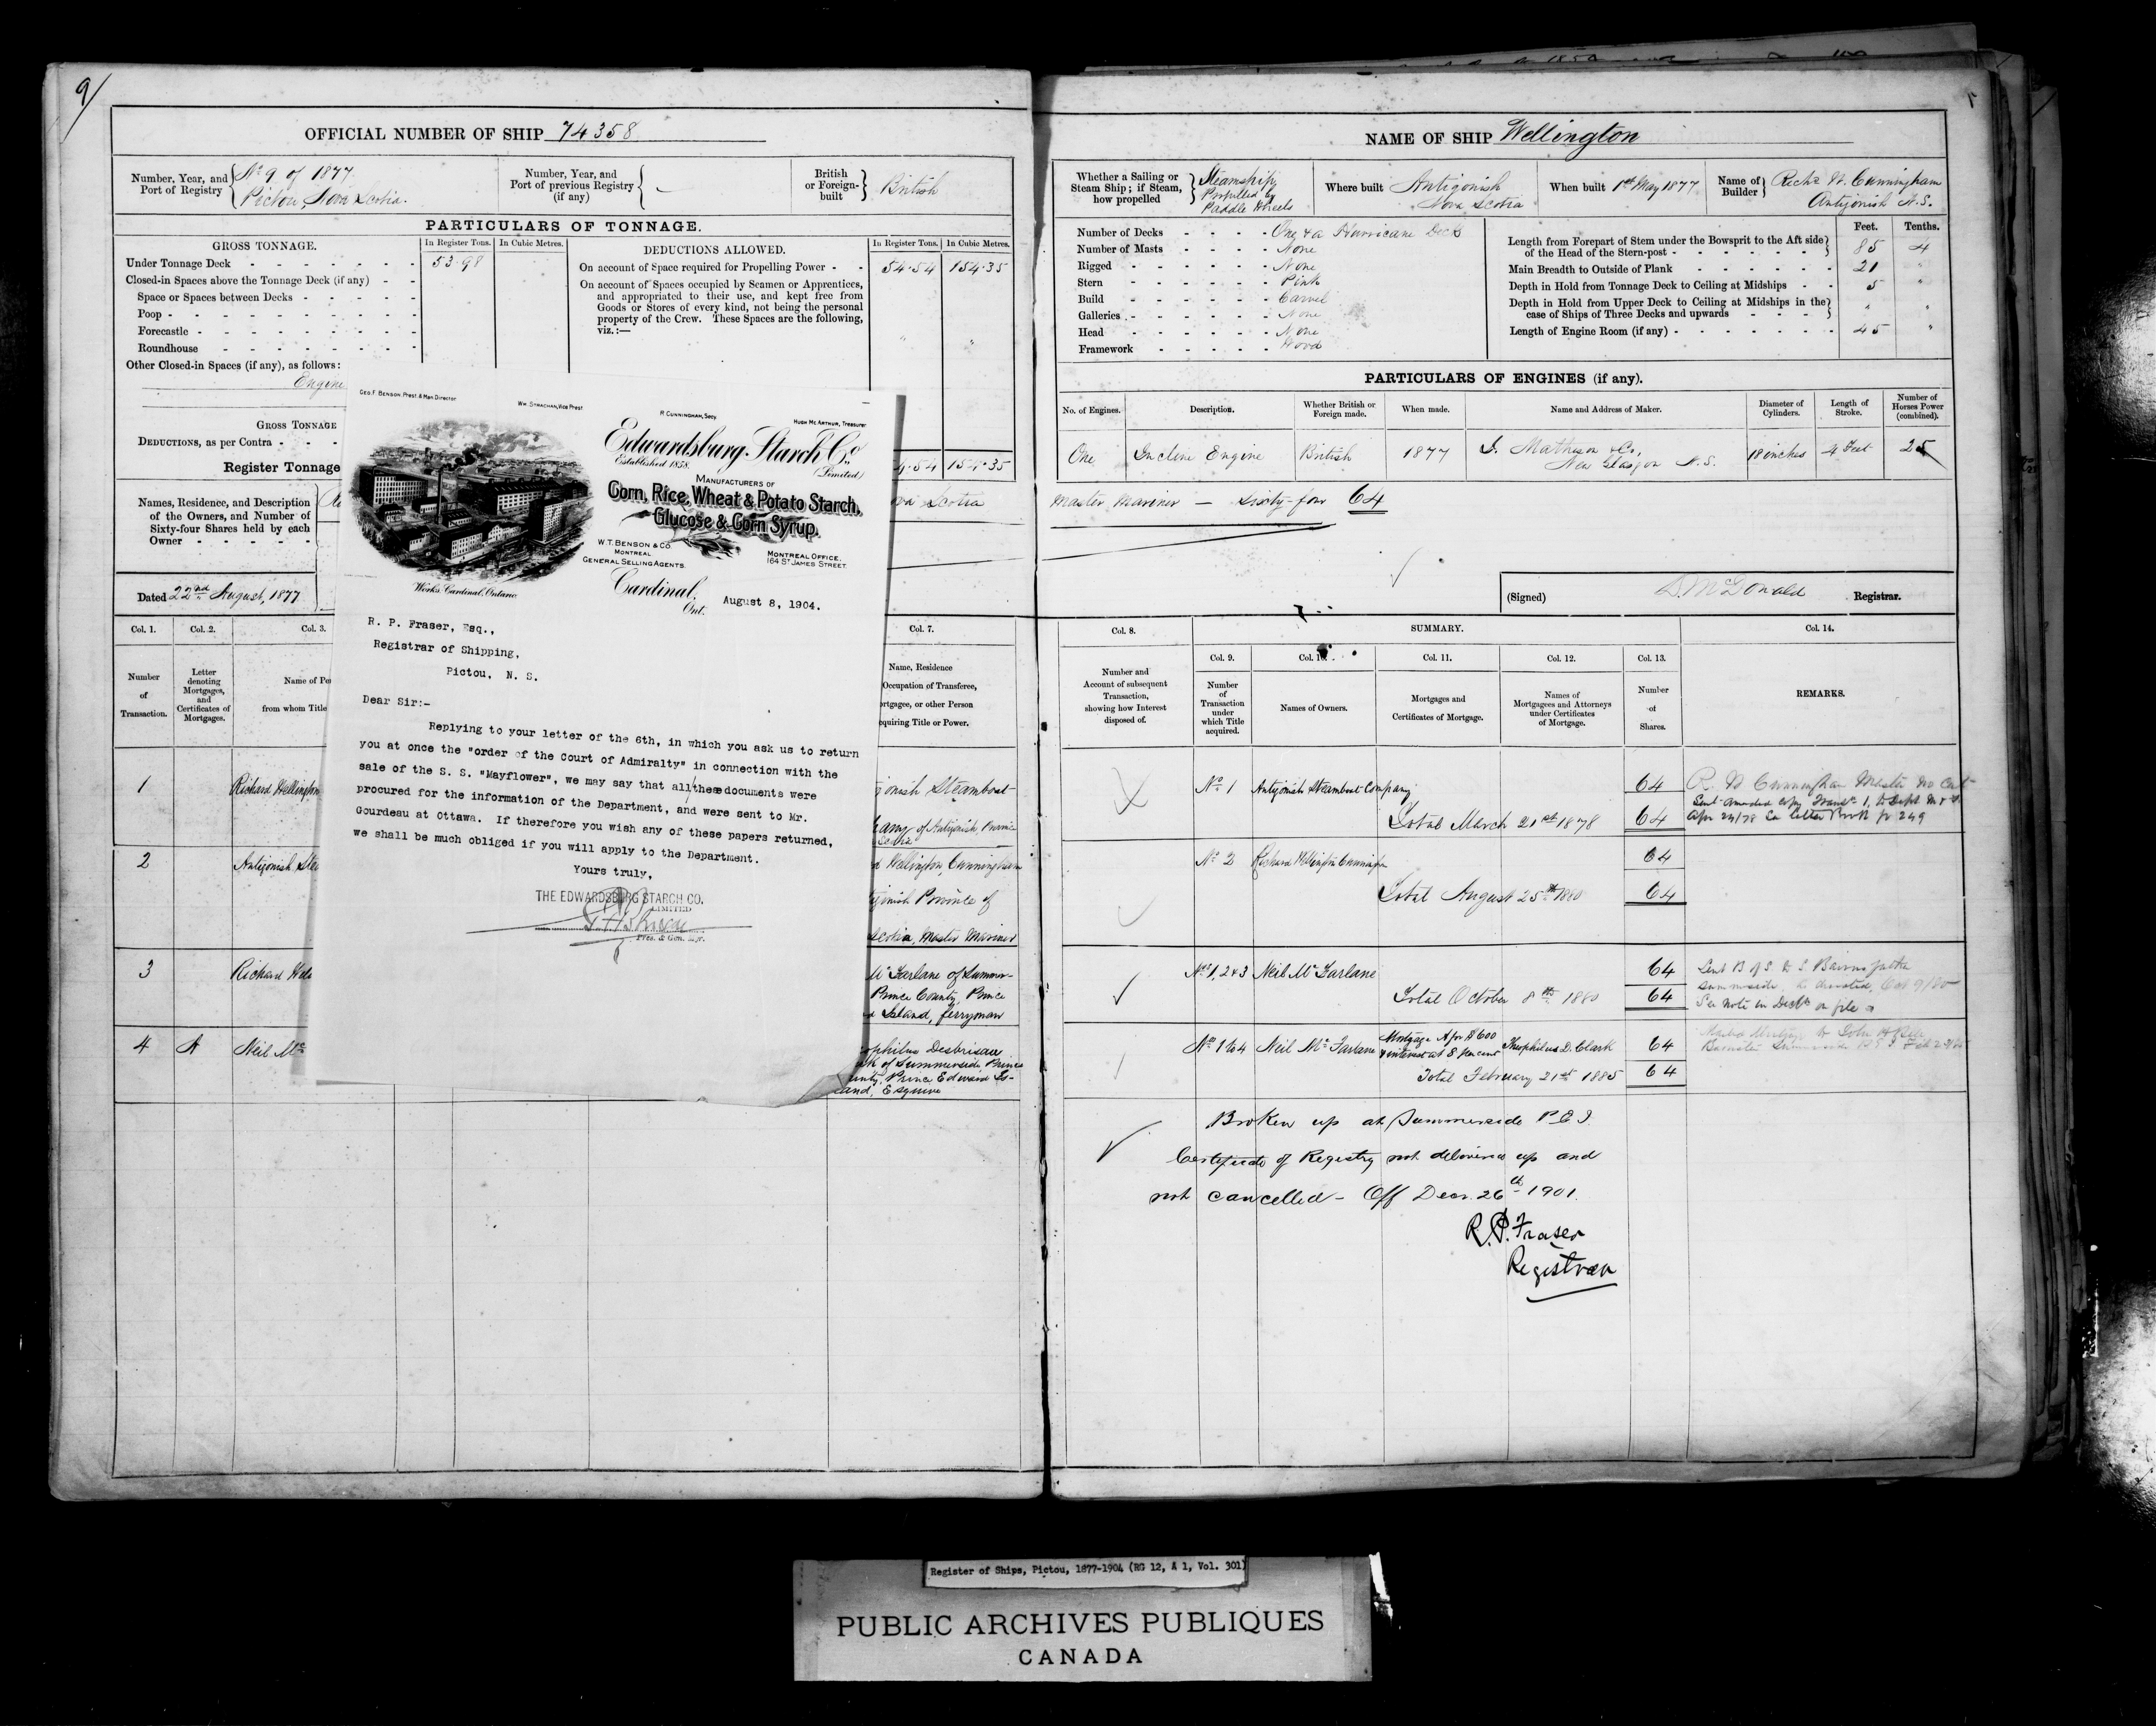 9/
OFFICIAL NUMBER OF SHIP 74358
Number, Year, and Port of Registry { No 9 of 1877 Pictou, Nova Scotia.
Number, Year, and Port of previous Registry (if any) { —
British or Foreign-built } British
PARTICULARS OF TONNAGE.
GROSS TONNAGE.
In Register Tons.
In Cubic Metres.
DEDUCTIONS ALLOWED.
In Register Tons.
In Cubic Metres.
Under Tonnage Deck - 53.98
Closed-in Spaces above the Tonnage Deck (if any) - -
Space or Spaces between Decks - - - - -
Poop - - - - - - - - -
Forecastle - - - - - - - -
Roundhouse - - - - - - -
Other Closed-in Spaces (if any), as follows:
Engine
GROSS TONNAGE
DEDUCTIONS, as per Contra - - -
Register Tonnage
On account of Space required for Propelling Power - - 54.54 154.35
On account of Spaces occupied by Seamen or Apprentices,
and appropriated to their use, and kept free from
Goods or Stores of every kind, not being the personal
property of the Crew. These Spaces are the following,
viz.:—
4.54 154.35
Names, Residence, and Description
of the Owners, and Number of
Sixty-four Shares held by each
Owner - - - - -
ova Scotia
Dated 22nd August, 1877
Col. 1.
Col. 2.
Col. 3.
Col. 7.
Number of Transaction.
Letter denoting Mortgages, and Certificates of Mortgages.
Name of Per
from whom Title
Name, Residence
Occupation of Transferee,
ortgagee, or other Person
quiring Title or Power.
1 Richard Wellington
onish Steamboat
any of Antigonish, Provinc
Scotia
2 Antigonish Stea
d Wellington Cunningham
gonish Province of
Scotia, Master Mariner
3 Richard Well
Mc Farlane of Summer-
Prince County, Prince
d Island, ferryman
4 A Neil Mc
ophilus Desbrisau
rk of Summerside Prince
unty, Prince Edward Is-
land, Esquire
GEO. F. BENSON, Prest. & Man Director.
WM. STRACHAN, Vice Prest
R. CUNNINGHAM, Secy.
HUGH MCARTHUR, Treasurer
Edwardsburg Starch Co.
Established 1858. (Limited)
MANUFACTURERS OF
Corn, Rice, Wheat & Potato Starch,
Glucose & Corn Syrup.
W.T. BENSON & CO.
MONTREAL
GENERAL SELLING AGENTS.
MONTREAL OFFICE.
164 ST JAMES STREET.
Works. Cardinal, Ontario.
Cardinal,
Ont.
August 8, 1904.
R. P. Fraser, Esq.,
Registrar of Shipping,
Pictou, N. S.
Dear Sir:-
Replying to your letter of the 6th, in which you ask us to return
you at once the "order of the Court of Admiralty" in connection with the
sale of the S. S. "Mayflower", we may say that all/these documents were
procured for the information of the Department, and were sent to Mr.
Gourdeau at Ottawa. If therefore you wish any of these papers returned,
we shall be much obliged if you will apply to the Department.
Yours truly,
THE EDWARDSBURG STARCH CO.
LIMITED
Pres. & Gen. Mgr.
NAME OF SHIP Wellington
Whether a Sailing or Steam Ship; if Steam, how propelled } Steamship, Propelled by Paddle Wheels
Where built Antigonish Nova Scotia
When built 1st May 1877
Name of Builder } Richd W. Cunningham Antigonish N.S.
Number of Decks - - - - One & a Hurricane Deck
Number of Masts - - - - None
Rigged - - - - - - None
Stern - - - - - - Pink
Build - - - - - - Carvel
Galleries - - - - - None
Head - - - - - - None
Framework - - - - - Wood
Feet. Tenths.
Length from Forepart of Stem under the Bowsprit to the Aft side of the Head of the Stern-post - 85 4
Main Breadth to Outside of Plank - 21 "
Depth in Hold from Tonnage Deck to Ceiling at Midships - - 5 "
Depth in Hold from Upper Deck to Ceiling at Midships in the case of Ships of Three Decks and upwards - " "
Length of Engine Room (if any) - 45 "
PARTICULARS OF ENGINES (if any).
No. of Engines.
Description.
Whether British or Foreign made.
When made.
Name and Address of Maker.
Diameter of Cylinders.
Length of Stroke.
Number of Horses Power (combined).
One Incline Engine British 1877 I. Matheson & Co., New Glasgow N.S. 18 inches 4 Feet 25
Master Mariner — Sixty-four 64
(Signed) D. McDonald Registrar.
Col. 8.
SUMMARY.
Col. 14.
Col. 9.
Col. 10.
Col. 11.
Col. 12.
Col. 13.
Number and Account of subsequent Transaction, showing how Interest disposed of.
Number of Transaction under which Title acquired.
Names of Owners.
Mortgages and Certificates of Mortgage.
Names of Mortgagees and Attorneys under Certificates of Mortgage.
Number of Shares.
REMARKS.
No 1 Antigonish Steamboat Company 64
R. W Cunningham Master no Cert
Sent amended copy Transn 1, to Dept M & F
Total March 21st 1878 64
Apr 24/78 See letter Book p 249
No 2 Richard Wellington Cunningham 64
Total August 25th 1880 64
Nos 1, 2 & 3 Neil Mc Farlane 64
Total October 8th 1880 64
Sent B of S to S
Summerside, Oct 9/80
See note in on file
Nos 1 to 4 Neil Mc Farlane Mortgage A for $600 & interest at 8 per cent Theophilus D. Clark 64
Total February 21st 1885 64
Broken up at Summerside P.E.I.
Certificate of Registry not delivered up and
not cancelled - Off Decr. 26th 1901.
R.P. Fraser
Registrar
Register of Ships, Pictou, 1877-1904 (RG 12, A 1, Vol. 301)
PUBLIC ARCHIVES PUBLIQUES
CANADA